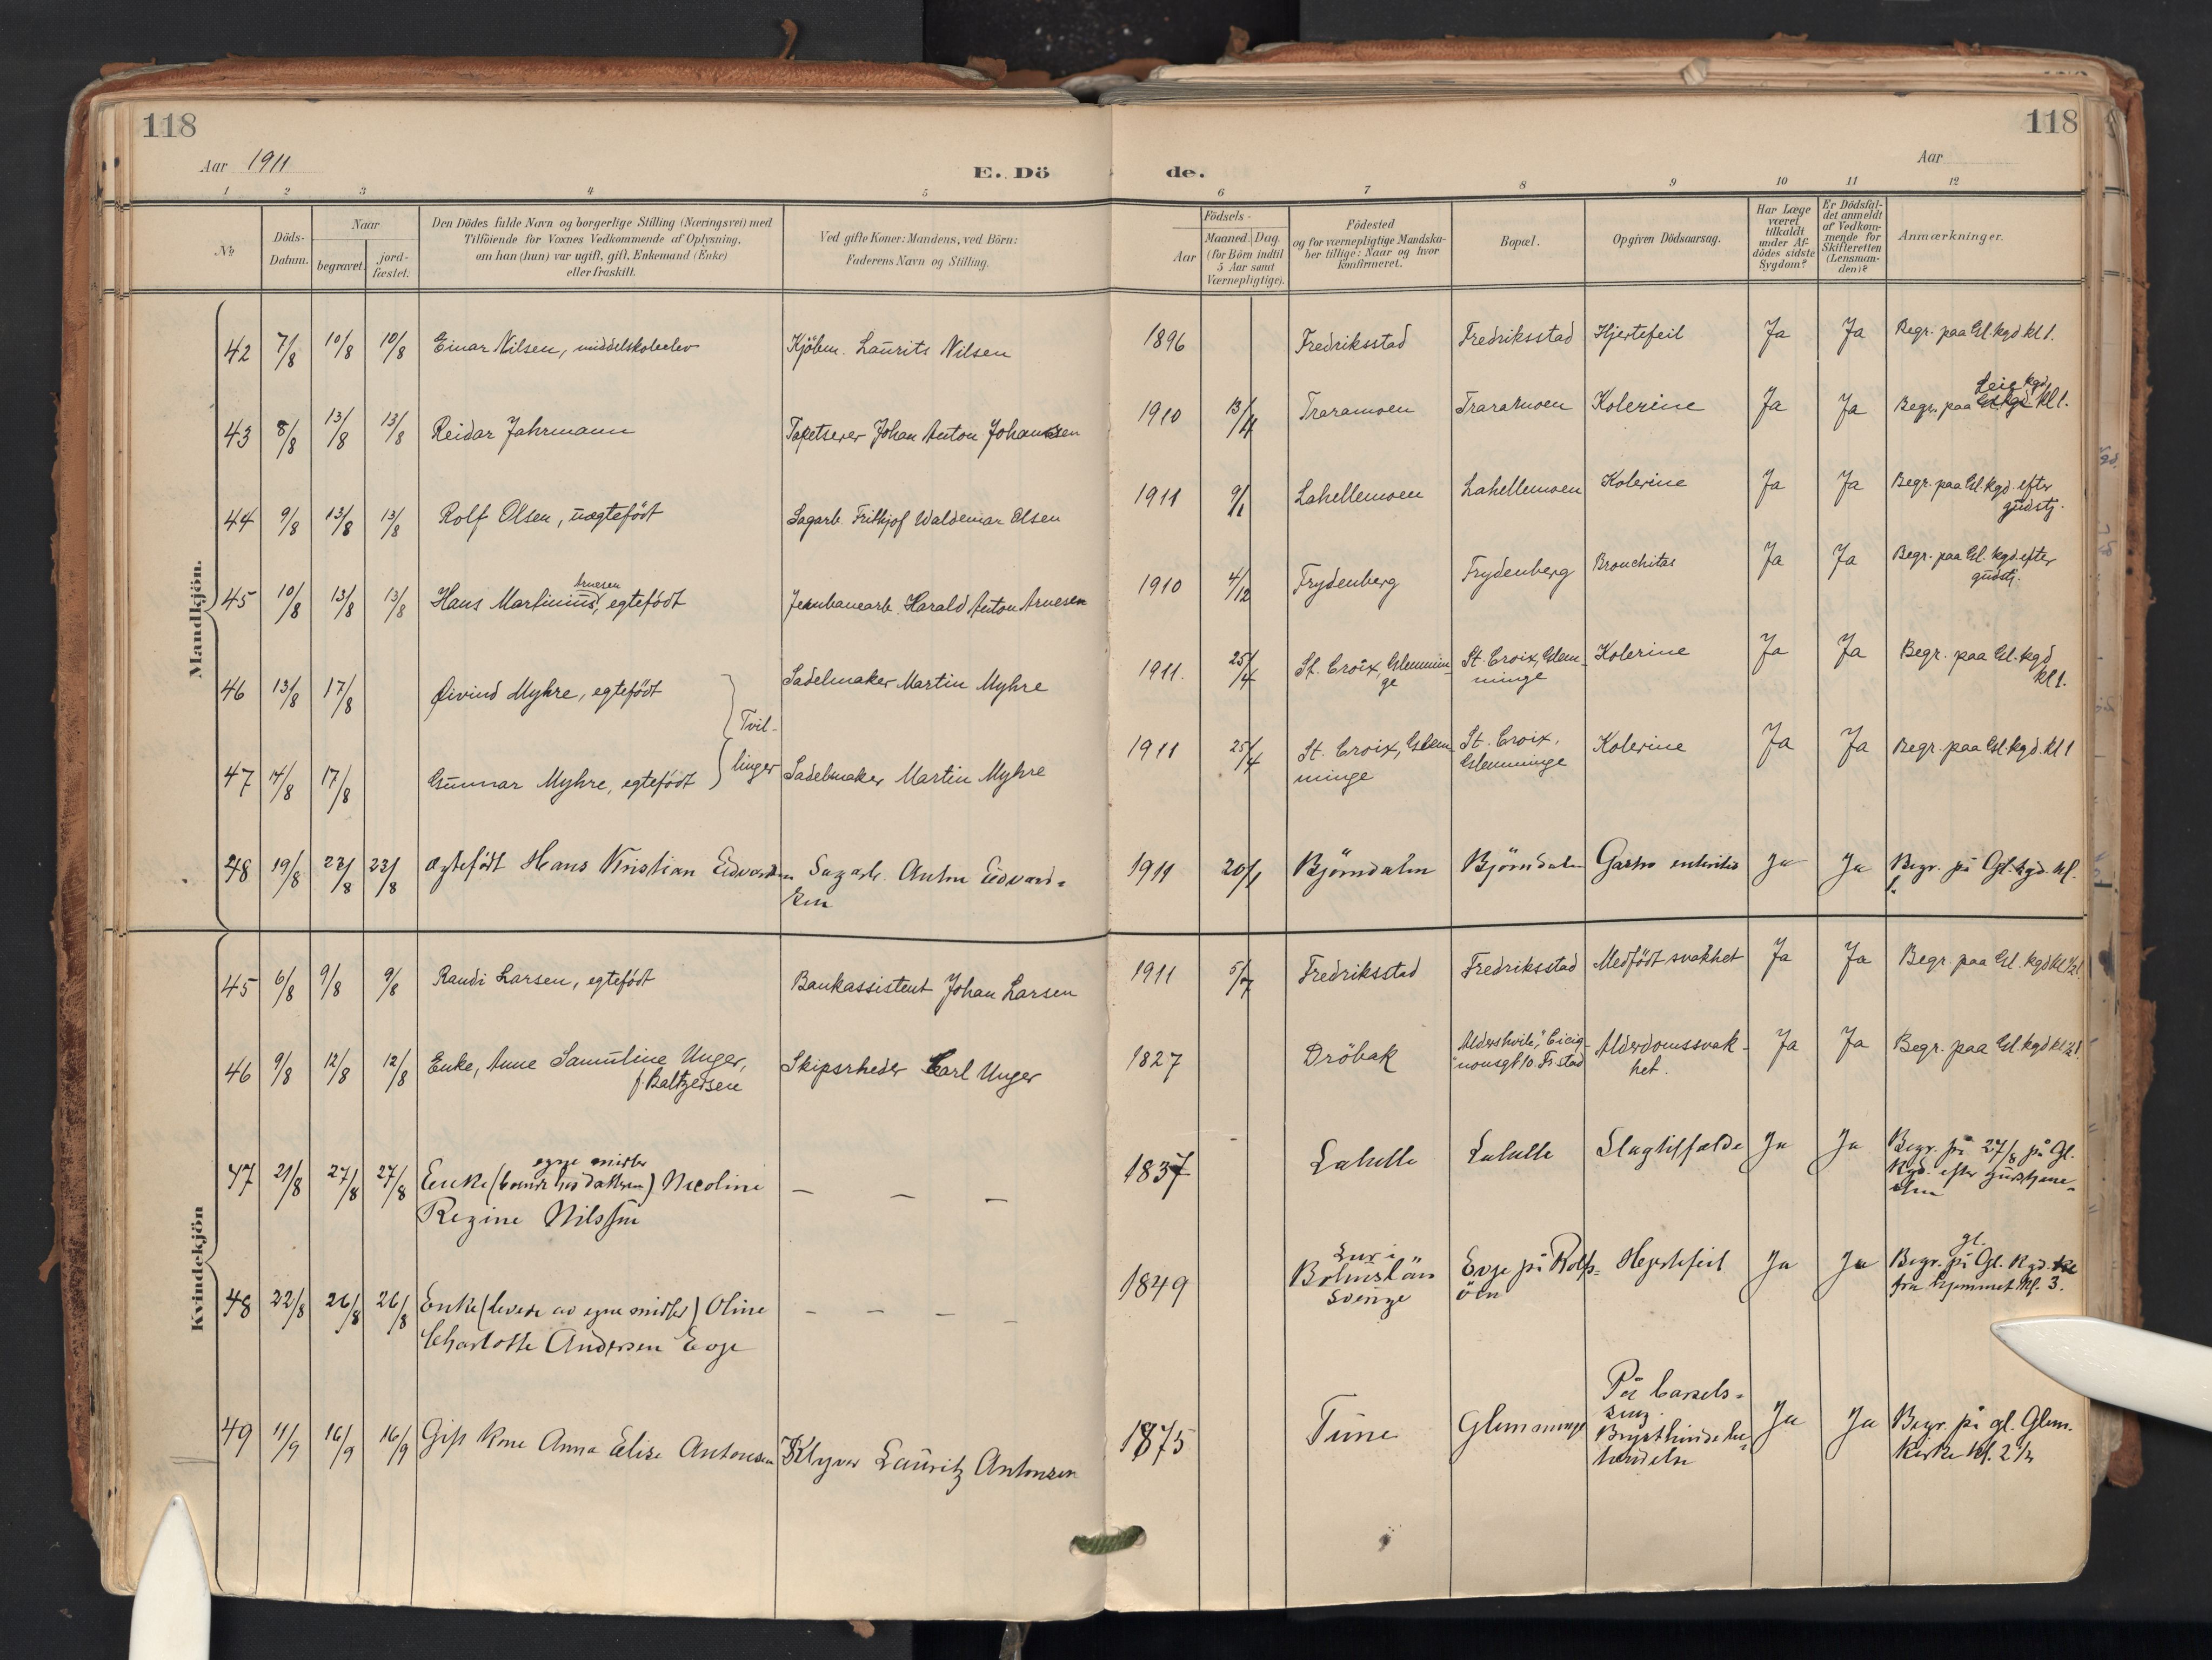 118
118
Aar 1911
E. Dö
de.
Aar
1 2 3 4 5 6 7 8 9 10 11 12
No
Döds-
Datum.
Naar
begravet.
jord-
fæstet.
Den Dödes fulde Navn og borgerlige Stilling (Næringsvei) med
Tilföiende for Voxnes Vedkommende af Oplysning,
om han (hun) var ugift, gift, Enkemand (Enke)
eller fraskilt.
Ved gifte Koner: Mandens, ved Börn:
Faderens Navn og Stilling.
Födsels-
Aar
Maaned. Dag.
(for Börn indtil
5 Aar samt
Værnepligtige).
Födested
og for værnepligtige Mandska-
ber tillige: Naar og hvor
konfirmeret.
Bopæl.
Opgiven Dödsaarsag.
Har Læge
været
tilkaldt
under Af-
dödes sidste
Sygdom?
Er Dödsfal-
det anmeldt
af Vedkom-
mende for
Skifteretten
(Lensman-
den)?
Anmærkninger.
Mandkjön.
42 7/8 10/8 10/8 Einar Nilsen, middelskoleelev Kjöbm. Laurits Nilsen 1896 Fredriksstad Fredriksstad Hjertefeil Ja Ja Begr. paa Gl. kgd kl 1.
43 8/8 13/8 13/8 Reidar Jahrmann Tapetserer Johan Anton Johansen 1910 13/4 Traramoen Traramoen Kolerine Ja Ja Begr. paa Leie kgd kl 1.
44 9/8 13/8 13/8 Rolf Olsen, uægtefödt Sagarb. Frithjof Waldemar Olsen 1911 9/1 Lahellemoen Lahellemoen Kolerine Ja Ja Begr. paa Gl. kgd. efter
gudstj.
45 10/8 13/8 13/8 Hans Martinius Arnesen, egtefödt Jernbanearb. Harald Anton Arnesen 1910 4/12 Frydenberg Frydenberg Bronchitas Ja Ja Begr. paa Gl. kgd. efter
gudstj.
46 13/8 17/8 Øivind Myhre, egtefödt Sadelmaker Martin Myhre 1911. 25/4 St. Croix, Glemmin- St. Croix, Glem- Kolerine Ja Ja Begr. paa Gl. kgd
ge minge kl 1.
Tvil-
linger
47 14/8 17/8 Gunnar Myhre, egtefödt Sadelmaker Martin Myhre 1911 25/4 St. Croix, Glem- St. Croix, Kolerine Ja Ja Begr. paa Gl. kgd. kl 1
minge Glemminge
48 19/8 23/8 23/8 ægtefödt Hans Kristian Edvardsen Sagarb. Anton Edvard-
sen 1911 20/1 Björndalen Björndalen Gastro enteritis Ja Ja Begr. på Gl. kgd. kl.
1.
Kvindekjön
45 6/8 9/8 9/8 Randi Larsen, egtefödt Bankassistent Johan Larsen 1911 5/7 Fredriksstad Fredriksstad Medfödt svakhet Ja Ja Begr. paa Gl. kgd kl 1/2 1.
46 9/8 12/8 12/8 Enke, Anne Samuline Unger, Skipsrheder Carl Unger 1827 Dröbak "Aldershvile", Cicig- Alderdomssvak- Ja Ja Begr. paa Gl. kgd kl 1/2 1.
f. Baltzersen nonsgt 10. Fr.stad het.
47 21/8 27/8 27/8 Enke ( egne midler hos datteren) Nicoline – – – 1837 Lahelle Lahelle Slagtilfælde Ja Ja Begr. på 27/8 på Gl.
Regine Nilssen kgd. efter gudstjene-
sten
48 22/8 26/8 26/8 Enke (levede av egne midler) Oline – – – – 1849 Lur i
Bohuslän
Sverige Evje på Rolfs-
öen Hjertefeil Ja Ja Begr. på gl. Gl. kgd.
Charlotte Andersen Evje fra hjemmet kl. 3.
49 11/9 16/9 16/9 Gift kone Anna Elise Antonsen Sklyver Lauritz Antonsen 1875 Tune Glemminge På barsels-
seng.
Brysthindebe-
tændelse Ja Ja Begr. på gl. Glem.
kirke kl. 2 1/2